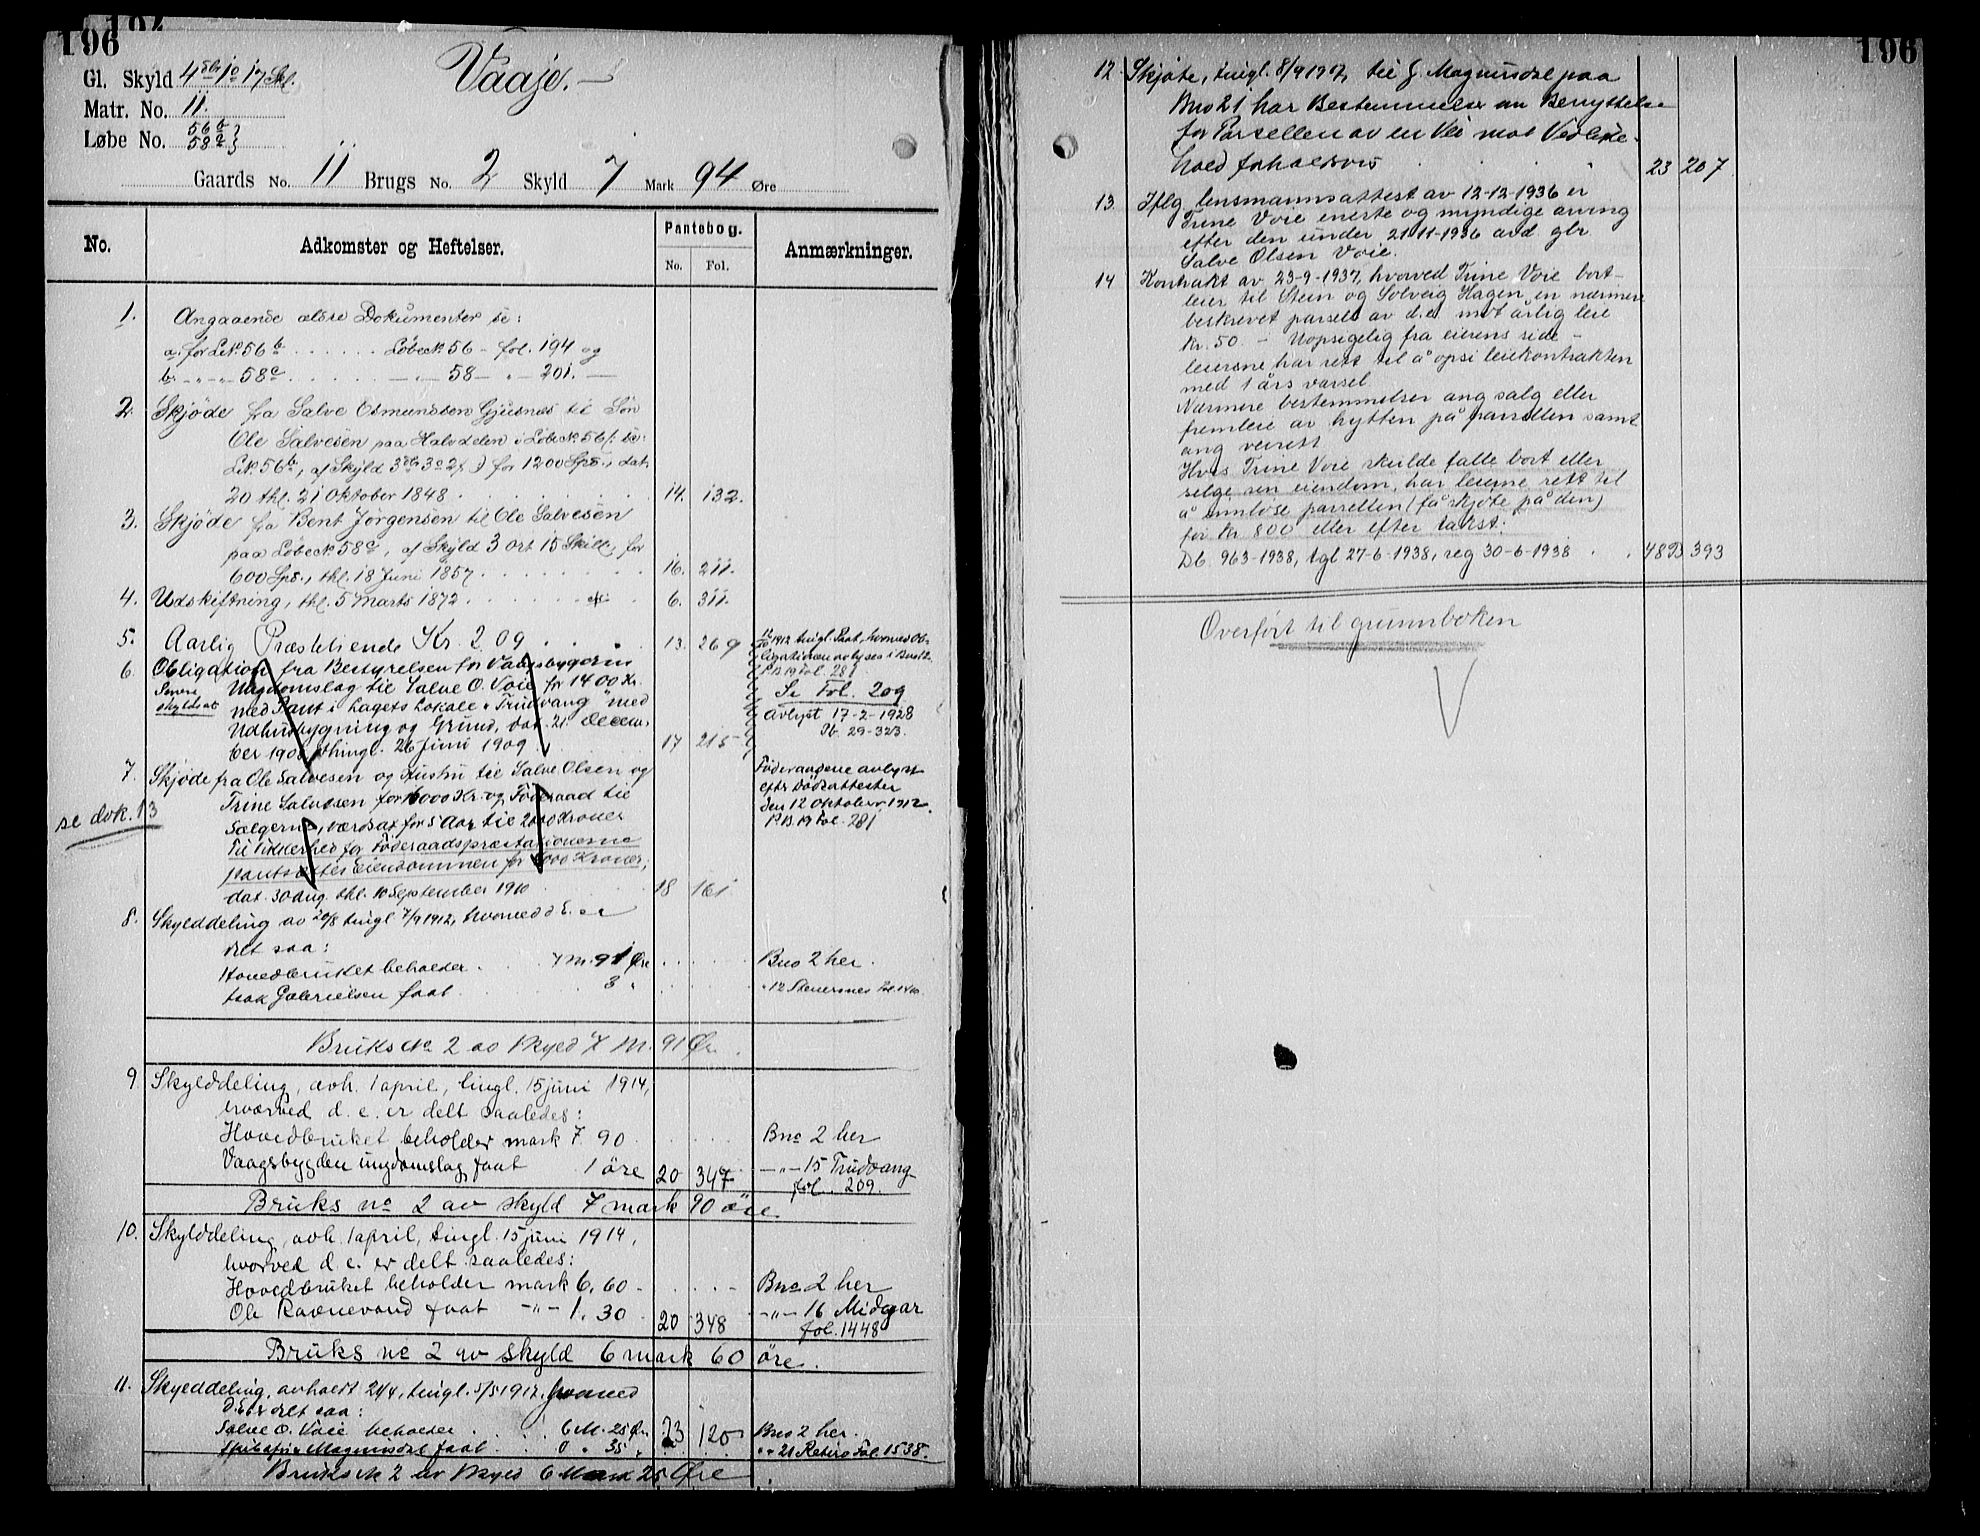 196
Gl. Skyld 4 Dlr 1 o 17 Sk.
Vaaje.
Matr. No. 11.
Løbe No. 56 b
58 c
Gaards No. 11 Brugs No. 2 Skyld 7 Mark 94 Øre
No. Adkomster og Heftelser. Pantebog. No. Fol. Anmærkninger.
1. Angaaende ældre Dokumenter se:
a. for L.No. 56 b . . . . . . Löbe No. 56 - fol. 194 og
b. - " - " - 58 c . . . . . . — " — 58 — " — 201. —
2. Skjöde fra Salve Osmundsen Gjusnes til Sön
Ole Salvesen paa Halvdelen i Löbe No. 56 se:
L.No. 56 b, af Skyld 3 3 o 2 ) for 1200 Spd., dat.
20 thl. 21 Oktober 1848 . . . . . . 14. 132.
3. Skjöde fra Bent Jörgensen til Ole Salvesen
paa Löbe No. 58 c, af Skyld 3 Ort 15 Skill., for
600 Spd., thl. 18 Juni 1857 . . . . . . 16. 211.
4. Udskiftning, thl. 5 Marts 1872 . . . . . . 6. 311.
5. Aarlig Præstetiende Kr. 2.09 . . . 13. 269
6. Obligation fra Bestyrelsen for Vaagsbygdens
Ungdomslag til Salve O. Voie for 1400 Kr.
med Pant i Lagets Lokale "Trudvang" med
Udhusbygning og Grund, dat. 21 Decem-
ber 1908 thingl. 26 Juni 1909 17 215
1912 tingl. Paat. hvorved Ob-
ligationen avlyses i Bno 2.
P.B. 19 Fol. 281
Se Fol. 209
Avlyst 17-2-1928
Pb. 29-323.
7. Skjöde fra Ole Salvesen og Hustru til Salve Olsen og
Trine Salvesen for 16000 Kr. og Föderaad til
Sælgerne, værdsat for 5 Aar til 2000 Kroner
Til Sikkerhed for Föderaadspræstationerne
pantsættes Eiendommen for Kroner,
dat. 30 Aug. thl. 10 September 1910 18 161
Föderaadene avlyst
efter Dödsattester
den 12 Oktober 1912.
P.B. 19 Fol. 281
se dok. 13
8. Skylddeling av 20/8 tingl 7/9 1912, hvorved d. E. er
delt saa:
Hovedbruket beholder . . . 7 M. 91 Øre . . . . . Bno 2 her.
Isak Gabrielsen faat . . . 3 " . . . . . " 12 Stenersnes Fol. 1410.
Bruks No 2 av Skyld 7 M. 91 Ør.
9. Skylddeling, avh. 1 april, tingl. 15 juni 1914,
hvorved d. e. er delt saaledes:
Hovedbruket beholder mark 7.90 . . . . . Bno 2 her
Vaagsbygden ungdomslag faat 1 öre 20 347 — " — 15 Trudvang
fol. 209.
Bruks no 2 av skyld 7 mark 90 öre
10. Skylddeling, avh. 1 april, tingl. 15 juni 1914,
hvorved d. e. er delt saaledes:
Hovedbruket beholder mark 6.60 - . . . . - Bno 2 her
Ole Ravnevand faat - " - 1.30 20 348 - " - 16 Midgar
fol. 1448
Bruks no 2 av skyld 6 mark 60 öre.
11. Skylddeling, avholdt 24/4, tingl. 5/5 1917, hvorved
d. E. er delt saa:
Salve O. Voie beholder . . . 6 M. 25 Ør. 23 120 Bno 2 her.
Magnusdal faat . . . 0 " 35 " . . " " 21 Retiro Fol. 1538.
Bruks No 2 av Skyld 6 Mark 25 Øre
196
12. Skjøte, tingl. 8/9 1917, til G. Magnusdal paa
Bno 21 har Bestemmelse om Benyttelse
for Parsellen av en Vei mot Vedlike-
hold forholdsvis . . . 23 207
13. Iflg. lensmannsattest av 12-12-1936 er
Trine Voie eneste og myndige arving
efter den under 21-11-1936 avd. gbr
Salve Olsen Voie.
14 Kontrakt av 23-9-1937, hvorved Trine Voie bort-
leier til Stein og Solveig Hagen en nærmere
beskrevet parsell av d.e. mot årlig leie
kr. 50. - Uopsigelig fra eierens side -
leierne har rett til å opsi leiekontrakten
med 1 års varsel.
Nærmere bestemmelser ang salg eller
fremleie av hytten på parsellen samt
ang veirett
Hvis Trine Voie skulde falle bort eller
selge sin eiendom, har leierne rett til
å innløse parsellen (få skjøte på den)
for kr 800 eller efter takst.
Db. 963-1938, tgl 27-6-1938, reg 30-6-1938 . . 48 393
Overført til grunnboken